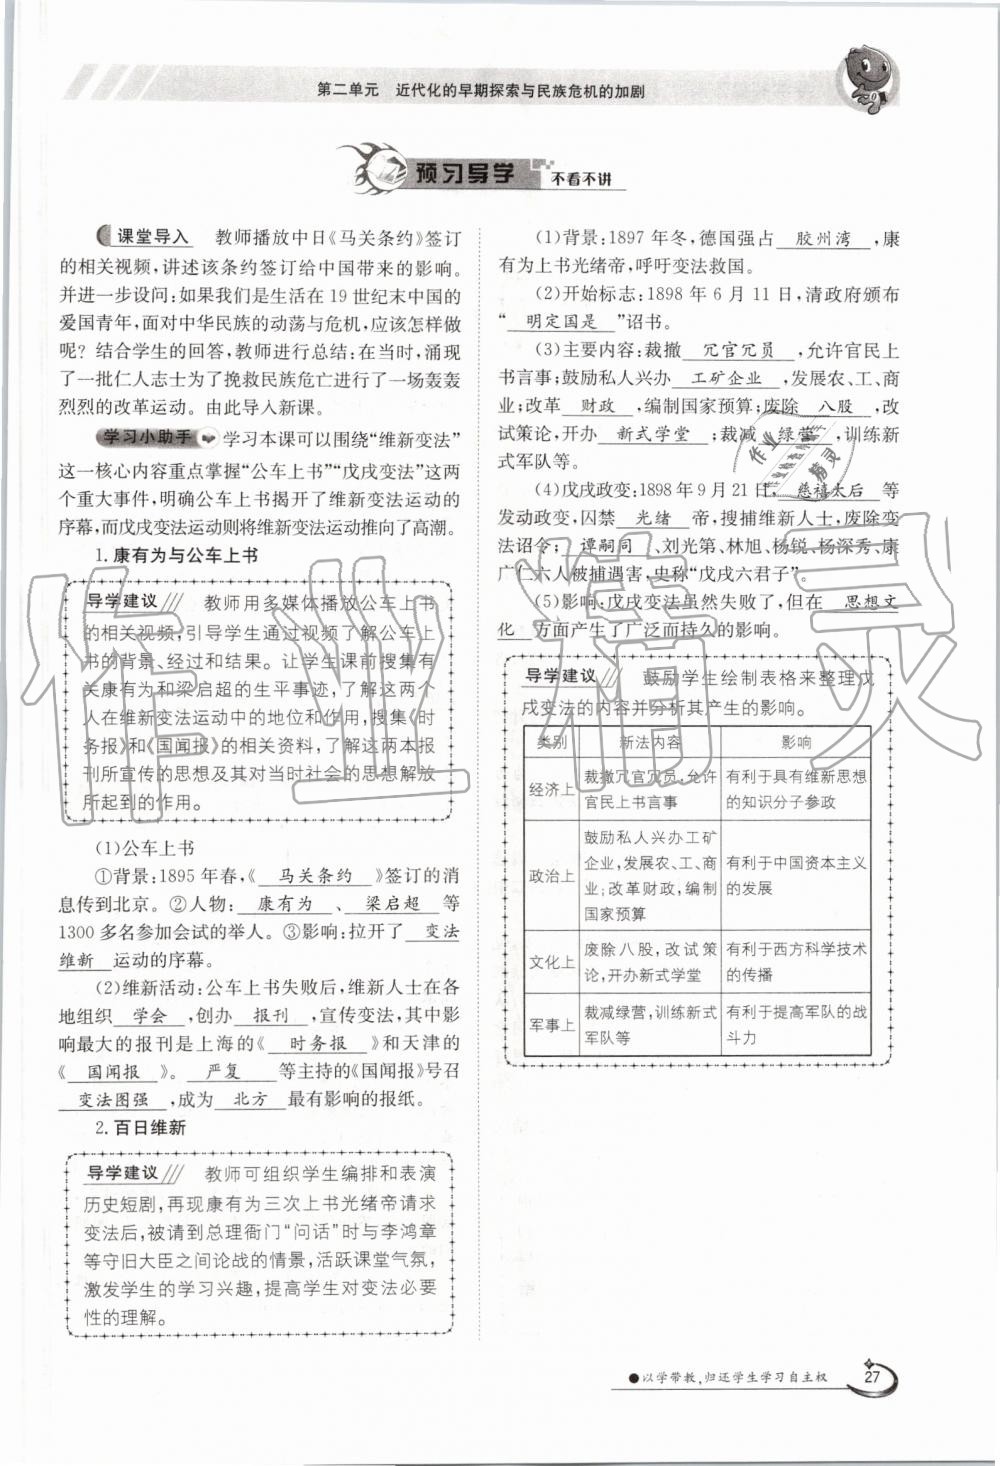 第二单元 近代化的早期探索与民族危机的加剧
预习导学 不看不讲
课堂导入 教师播放中日《马关条约》签订
的相关视频,讲述该条约签订给中国带来的影响。
并进一步设问:如果我们是生活在 19 世纪末中国的
爱国青年,面对中华民族的动荡与危机,应该怎样做
呢? 结合学生的回答,教师进行总结:在当时,涌现
了一批仁人志士为了挽救民族危亡进行了一场轰轰
烈烈的改革运动。由此导入新课。
学习小助手 学习本课可以围绕“维新变法”
这一核心内容重点掌握“公车上书”“戊戌变法”这两
个重大事件,明确公车上书揭开了维新变法运动的
序幕,而戊戌变法运动则将维新变法运动推向了高潮。
1. 康有为与公车上书
导学建议 教师用多媒体播放公车上书
的相关视频,引导学生通过视频了解公车上
书的背景、经过和结果。让学生课前搜集有
关康有为和梁启超的生平事迹,了解这两个
人在维新变法运动中的地位和作用,搜集《时
务报》和《国闻报》的相关资料,了解这两本报
刊所宣传的思想及其对当时社会的思想解放
所起到的作用。
(1)公车上书
①背景:1895 年春,《 马关条约 》签订的消
息传到北京。②人物: 康有为 、 梁启超 等
1300 多名参加会试的举人。③影响:拉开了 变法
维新 运动的序幕。
(2)维新活动:公车上书失败后,维新人士在各
地组织 学会 ,创办 报刊 ,宣传变法,其中影
响最大的报刊是上海的《 时务报 》和天津的
《 国闻报 》。 严复 等主持的《国闻报》号召
变法图强 ,成为 北方 最有影响的报纸。
2. 百日维新
导学建议 教师可组织学生编排和表演
历史短剧,再现康有为三次上书光绪帝请求
变法后,被请到总理衙门“问话”时与李鸿章
等守旧大臣之间论战的情景,活跃课堂气氛,
激发学生的学习兴趣,提高学生对变法必要
性的理解。
(1)背景:1897 年冬,德国强占 胶州湾 ,康
有为上书光绪帝,呼吁变法救国。
(2)开始标志:1898 年 6 月 11 日,清政府颁布
“ 明定国是 ”诏书。
(3)主要内容:裁撤 冗官冗员 ,允许官民上
书言事;鼓励私人兴办 工矿企业 ,发展农、工、商
业;改革 财政 ,编制国家预算;废除 八股 ,改
试策论,开办 新式学堂 ;裁减 绿营 ,训练新
式军队等。
(4)戊戌政变:1898 年 9 月 21 日, 慈禧太后 等
发动政变,囚禁 光绪 帝,搜捕维新人士,废除变
法诏令; 谭嗣同 、刘光第、林旭、杨锐、杨深秀、康
广仁六人被捕遇害,史称“戊戌六君子”。
(5)影响:戊戌变法虽然失败了,但在 思想文
化 方面产生了广泛而持久的影响。
导学建议 鼓励学生绘制表格来整理戊
戌变法的内容并分析其产生的影响。
类别 新法内容 影响
经济上 裁撤冗官冗员,允许官民上书言事 有利于具有维新思想的知识分子参政
政治上 鼓励私人兴办工矿企业,发展农、工、商业;改革财政,编制国家预算 有利于中国资本主义的发展
文化上 废除八股,改试策论,开办新式学堂 有利于西方科学技术的传播
军事上 裁减绿营,训练新式军队等 有利于提高军队的战斗力
●以学带教,归还学生学习自主权
27
作业精灵